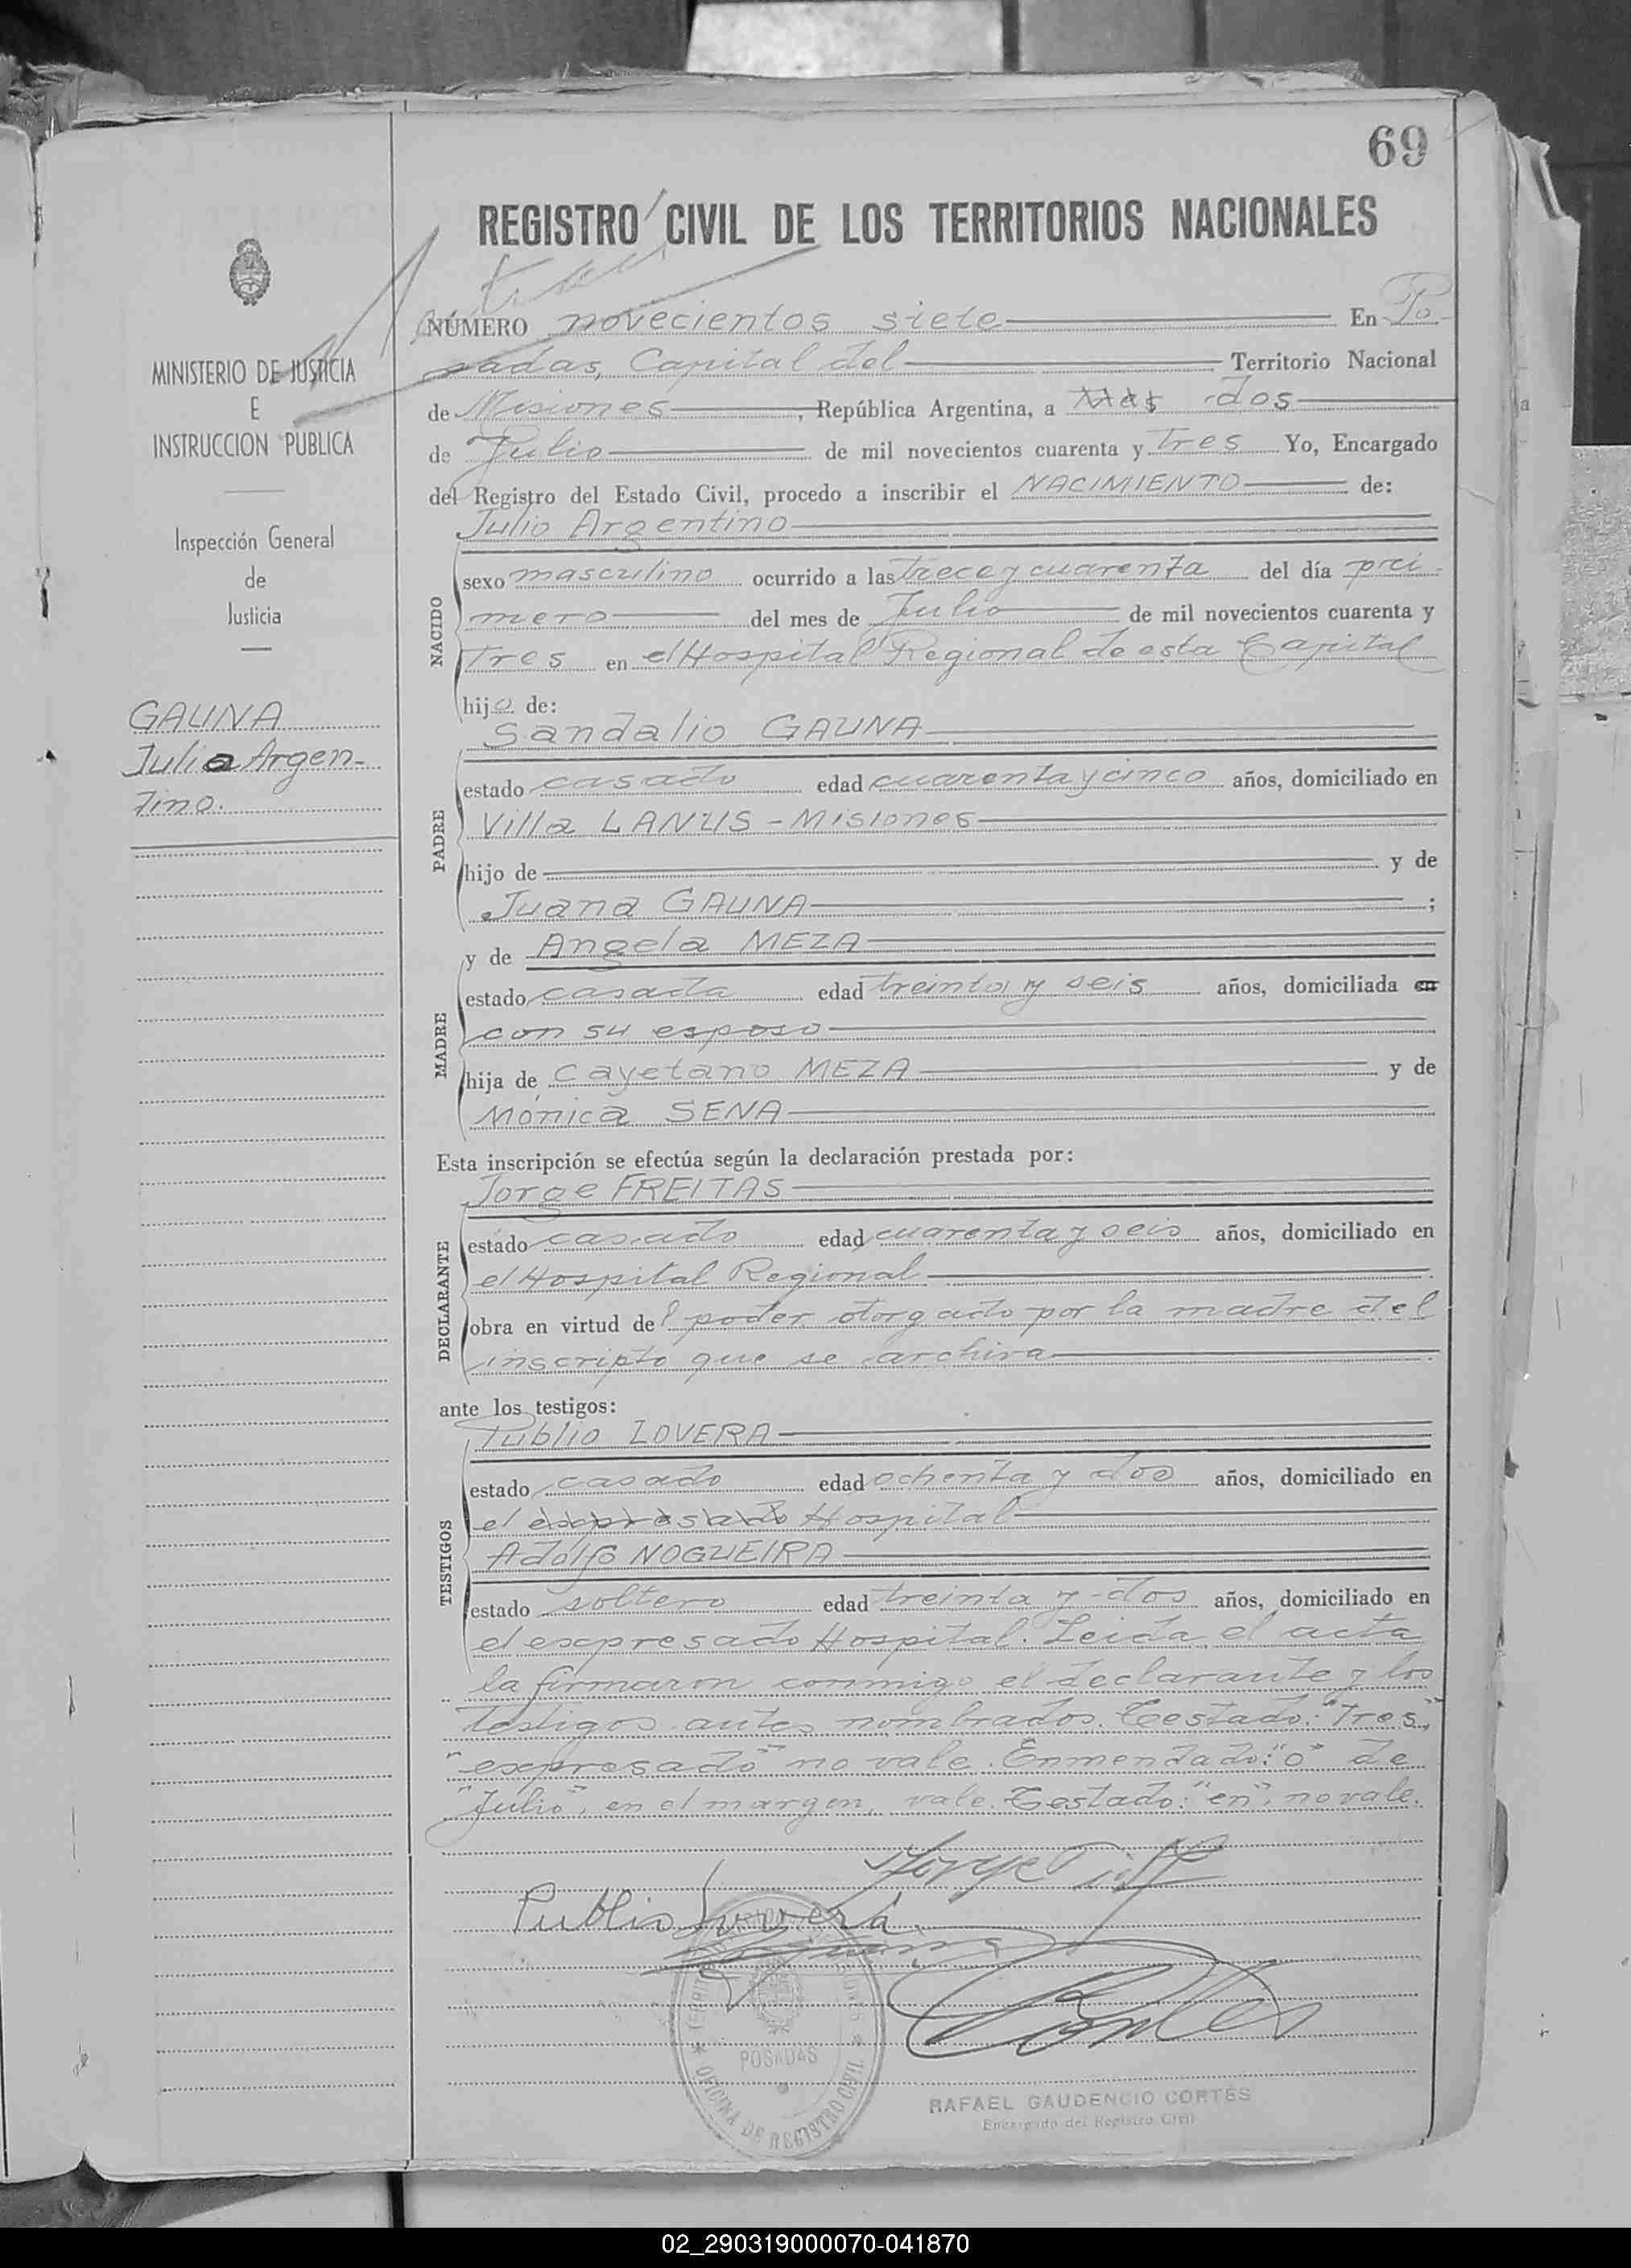 69
REGISTRO CIVIL DE LOS TERRITORIOS NACIONALES
MINISTERIO DE JUSTICIA
E
INSTRUCCION PUBLICA
Inspección General
de
Justicia
GAUNA
Julio Argen-
tino.
NÚMERO novecientos siete En Po-
sadas, Capital del Territorio Nacional
de Misiones, República Argentina, a tres dos
de Julio de mil novecientos cuarenta y tres Yo, Encargado
del Registro del Estado Civil, procedo a inscribir el NACIMIENTO de:
Julio Argentino
NACIDO
sexo masculino ocurrido a las trece y cuarenta del día pri-
mero del mes de Julio de mil novecientos cuarenta y
Tres en el Hospital Regional de esta Capital
hijo de:
Sandalio GAUNA
PADRE
estado casado edad cuarenta y cinco años, domiciliado en
Villa LANUS - Misiones
hijo de y de
Juana GAUNA ;
y de Angela MEZA
MADRE
estado casada edad treinta y seis años, domiciliada en
con su esposo
hija de Cayetano MEZA y de
Mónica SENA
Esta inscripción se efectúa según la declaración prestada por:
Jorge FREITAS
DECLARANTE
estado casado edad cuarenta y seis años, domiciliado en
el Hospital Regional
obra en virtud del poder otorgado por la madre del
inscripto que se archiva
ante los testigos:
Publio LOVERA
TESTIGOS
estado casado edad ochenta y dos años, domiciliado en
el expresado Hospital
Adolfo NOGUEIRA
estado soltero edad treinta y dos años, domiciliado en
el expresado Hospital. Leida el acta
la firmaron conmigo el declarante y los
testigos antes nombrados. Testado: "Tres",
"expresado" no vale. Enmendado: "o" de
"Julio", en el margen, vale. Testado: "en", no vale.
Publio Lovera
POSADAS
OFICINA DE REGISTRO CIVIL
RAFAEL GAUDENCIO CORTÉS
Encargado del Registro Civil
02_290319000070-041870